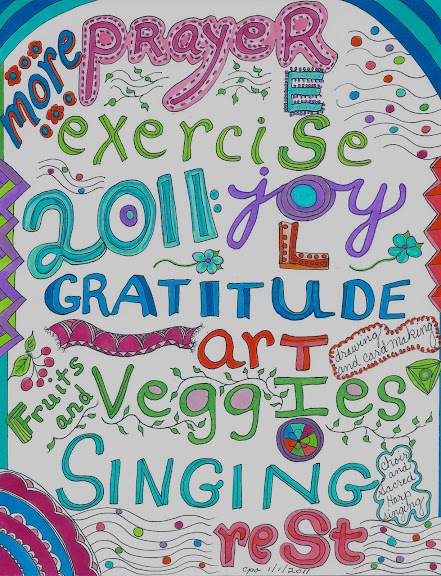 more PRayeR
E
exerciSe
2011: joy
L
GRATITUDE
arT
drawing
and card making
Fruits
and
VeggIes
O
SINGING
choir
and
Sacred
Harp
singing
reSt
1/1/2011